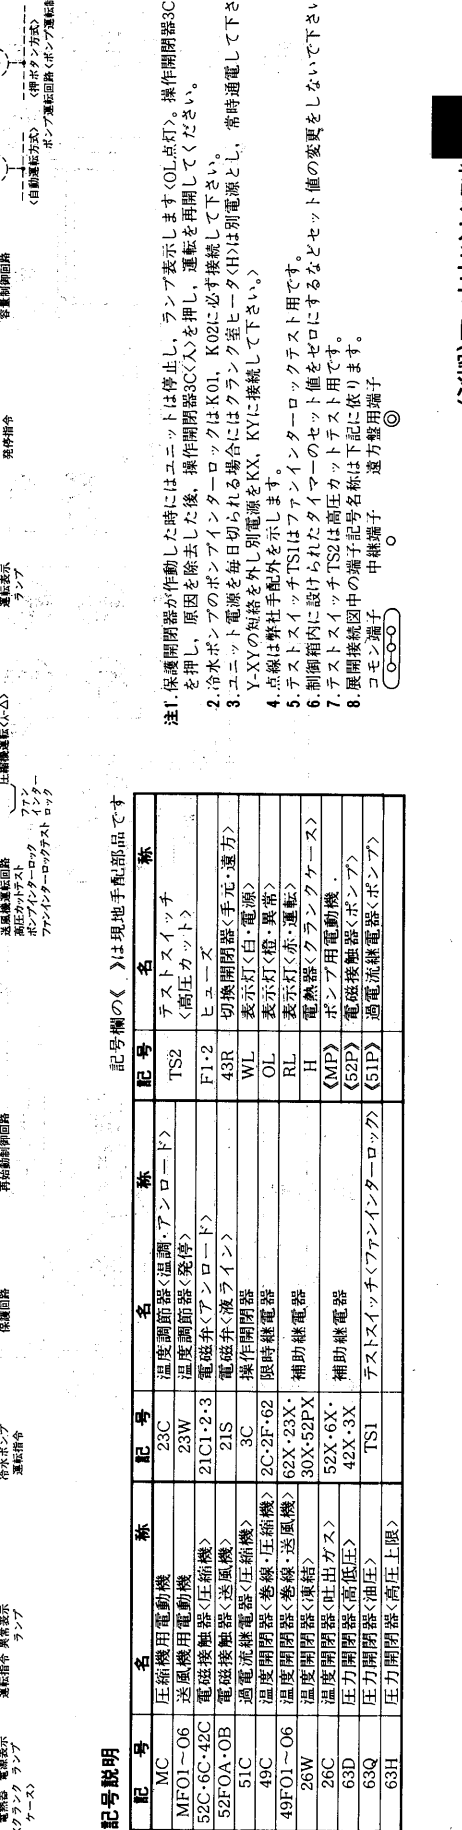 電熱器
〈クランク
ケース〉
電源表示
ランプ
運転指令
異常表示
ランプ
冷水ポンプ
運転指令
保護回路
再始動制御回路
送風機運転回路
高圧カットテスト
ポンプインターロック
ファンインターロックテスト
ファン
インター
ロック
運転表示
ランプ
発停指令
容量制御回路
〈自動運転方式〉
〈押ボタン方式〉
記号説明
記号欄の《 》は現地手配部品です
記 号 名 称 記 号 名 称 記 号 名 称
MC 圧縮機用電動機 23C 温度調節器〈温調・アンロード〉 TS2 テストスイッチ
〈高圧カット〉
MF01～06 送風機用電動機 23W 温度調節器〈発停〉
52C・6C・42C 電磁接触器〈圧縮機〉 21C1・2・3 電磁弁〈アンロード〉 F1・2 ヒューズ
52FOA・OB 電磁接触器〈送風機〉 21S 電磁弁〈液ライン〉 43R 切換開閉器〈手元・遠方〉
51C 過電流継電器〈圧縮機〉 3C 操作開閉器 WL 表示灯〈白・電源〉
49C 温度開閉器〈巻線・圧縮機〉 2C・2F・62 限時継電器 OL 表示灯〈橙・異常〉
49F01～06 温度開閉器〈巻線・送風機〉 62X・23X・
30X・52PX 補助継電器 RL 表示灯〈赤・運転〉
26W 温度開閉器〈凍結〉 H 電熱器〈クランクケース〉
26C 温度開閉器〈吐出ガス〉 52X・6X・
42X・3X 補助継電器 《MP》 ポンプ用電動機
63D 圧力開閉器〈高低圧〉 《52P》 電磁接触器〈ポンプ〉
63Q 圧力開閉器〈油圧〉 TS1 テストスイッチ〈ファンインターロック〉 《51P》 過電流継電器〈ポンプ〉
63H 圧力開閉器〈高圧上限〉
注1.保護開閉器が作動した時にはユニットは停止し，ランプ表示します〈OL点灯〉。操作開閉器3C
を押し，原因を除去した後，操作開閉器3C〈入〉を押し，運転を再開してください。
2.冷水ポンプのポンプインターロックはK01，K02に必ず接続して下さい。
3.ユニット電源を毎日切られる場合にはクランク室ヒータ〈H〉は別電源とし，常時通電して下さ
Y-XYの短絡を外し別電源をKX，KYに接続して下さい。〉
4.点線は弊社手配外を示します。
5.テストスイッチTS1はファンインターロックテスト用です。
6.制御箱内に設けられたタイマーのセット値をゼロにするなどセット値の変更をしないで下さい
7.テストスイッチTS2は高圧カットテスト用です。
8.展開接続図中の端子記号名称は下記に依ります。
コモン端子 中継端子 遠方盤用端子